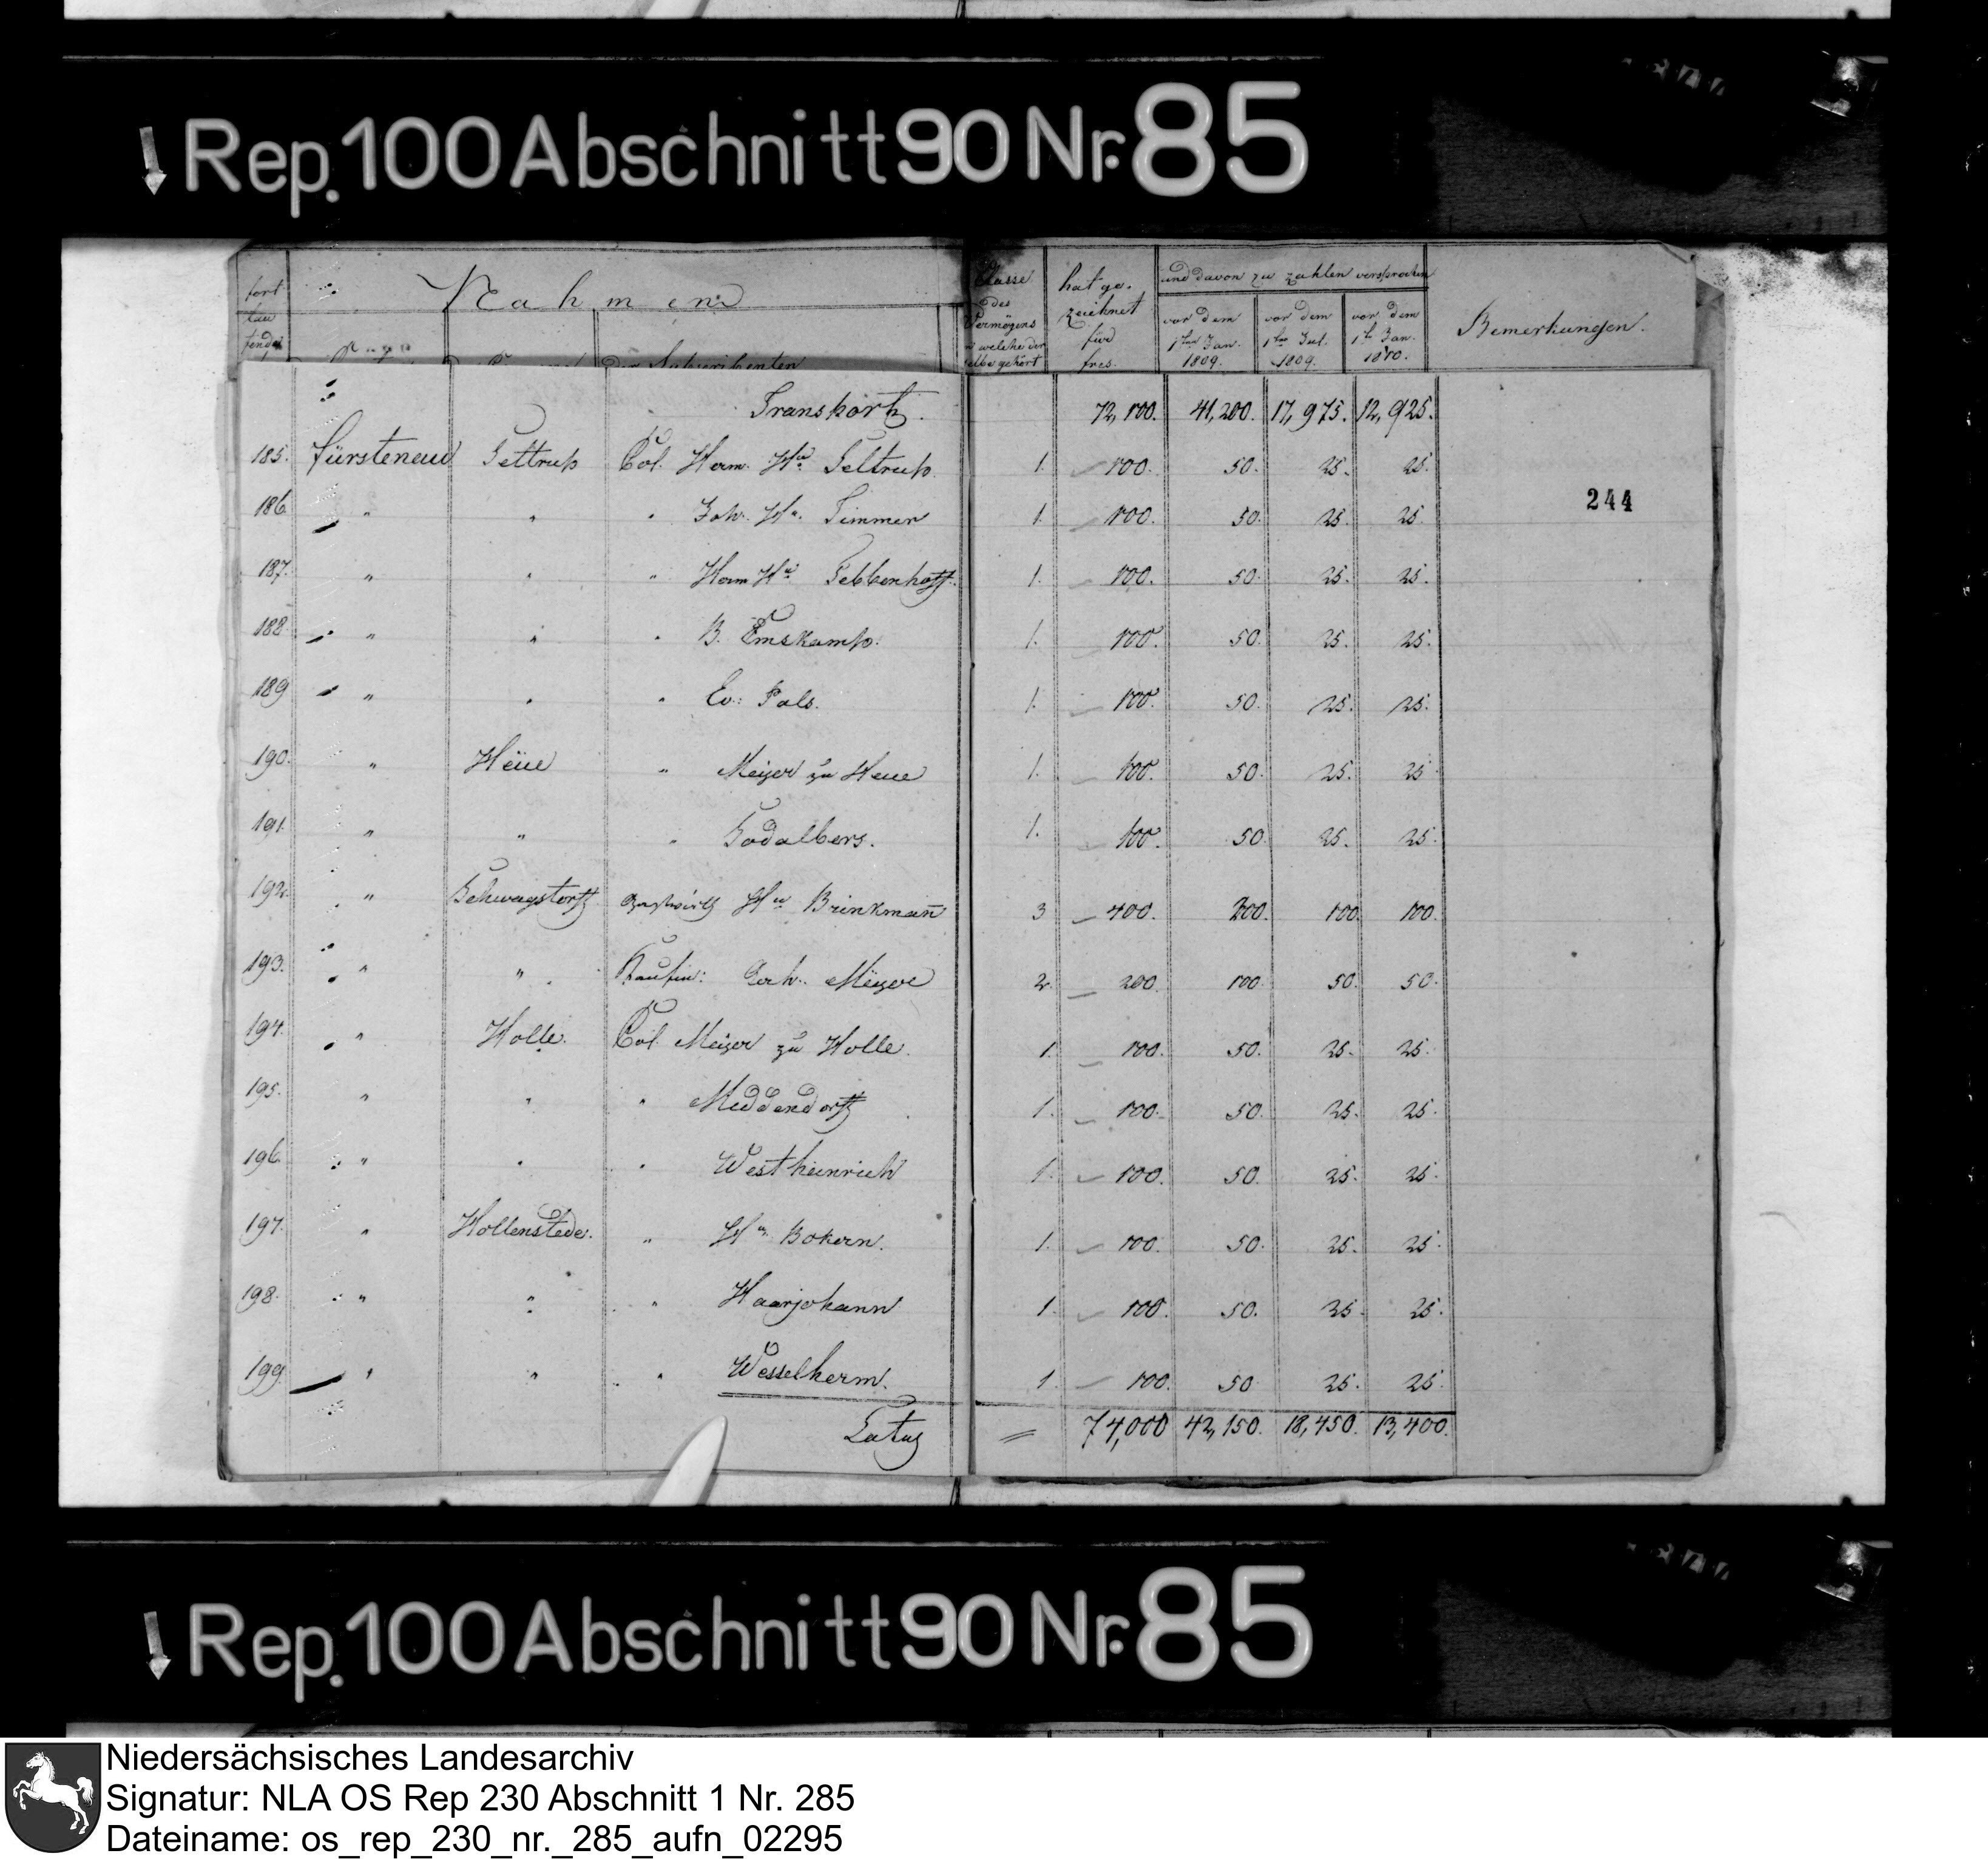 Rep. 100 Abschnitt 90 Nr. 85
fort
lau
fende
Nahmen
Classe
des
Vermögens
welche der
selbe gehört
hat ge-
zeichnet
für
frcs.
und davon zu zahlen versprochen
vor dem
1ten Jan.
1809.
vor dem
1ten Jul.
1809.
vor dem
1ten Jan.
1810.
Bemerkungen.
der Subscribenten
Transport. 72,100. 41,200. 17,975. 12,925.
185. Fürstenau Settrup Col. Herm. Hn Settrup 1. 100. 50. 25. 25.
244
186. " " " Joh. Hn. Timmer 1. 100. 50. 25. 25.
187. " " " Herm Hn Tebbenhoff. 1. 100. 50. 25. 25.
188. " " " B. Emskamp. 1. 100. 50. 25. 25.
189 " " " Ev: Pals. 1. 100. 50. 25. 25.
190. " Heüe " Meijer zu Heue 1. 100. 50. 25. 25
191. " " " Sodalbers. 1. 100. 50. 25. 25.
192. " Schwagstorff Gastwirth Hn Brinkmañ 3 400. 200. 100. 100.
193. " " Kaufm: Gerh. Meijer 2. 200. 100. 50. 50.
194. " Holle. Col. Meijer zu Holle. 1. 100. 50. 25. 25.
195. " " " Meddendorff 1. 100. 50. 25. 25.
196. " " " Westheinrich 1. 100. 50. 25. 25.
197. " Hollenstede. " Hn. Bokern. 1. 100. 50. 25. 25.
198. " " " Haarjohann 1. 100. 50. 25. 25.
199. " " " Wesselherm. 1. 100. 50 25. 25.
Latus 74,000 42,150. 18,450. 13,400.
Rep. 100 Abschnitt 90 Nr. 85
Niedersächsisches Landesarchiv
Signatur: NLA OS Rep 230 Abschnitt 1 Nr. 285
Dateiname: os_rep_230_nr._285_aufn_02295